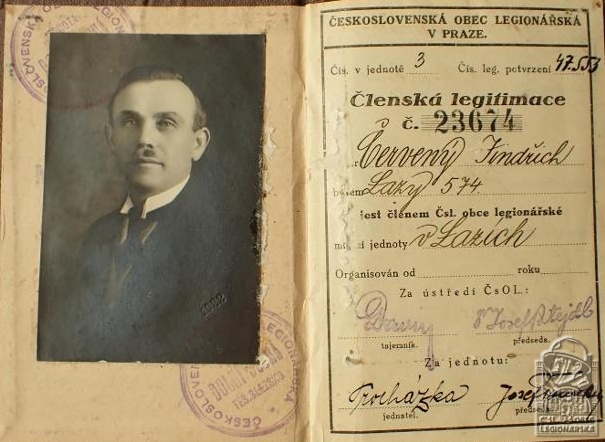 ČESKOSLOVENSKÁ OBEC LEGIONÁŘSKÁ
V PRAZE.
Čís. v jednotě 3 Čís. leg. potvrzení 47.553
Členská legitimace
č. 23674
Červený Jindřich
Lazy 574
jest členem Čsl. obce legionářské
jednoty v Lazích
Organisován od roku
Za ústředí ČsOL:
Dr Josef
tajemník. předseda.
Za jednotu:
Procházka Josef
jednatel.
LEGIONÁŘSKÁ